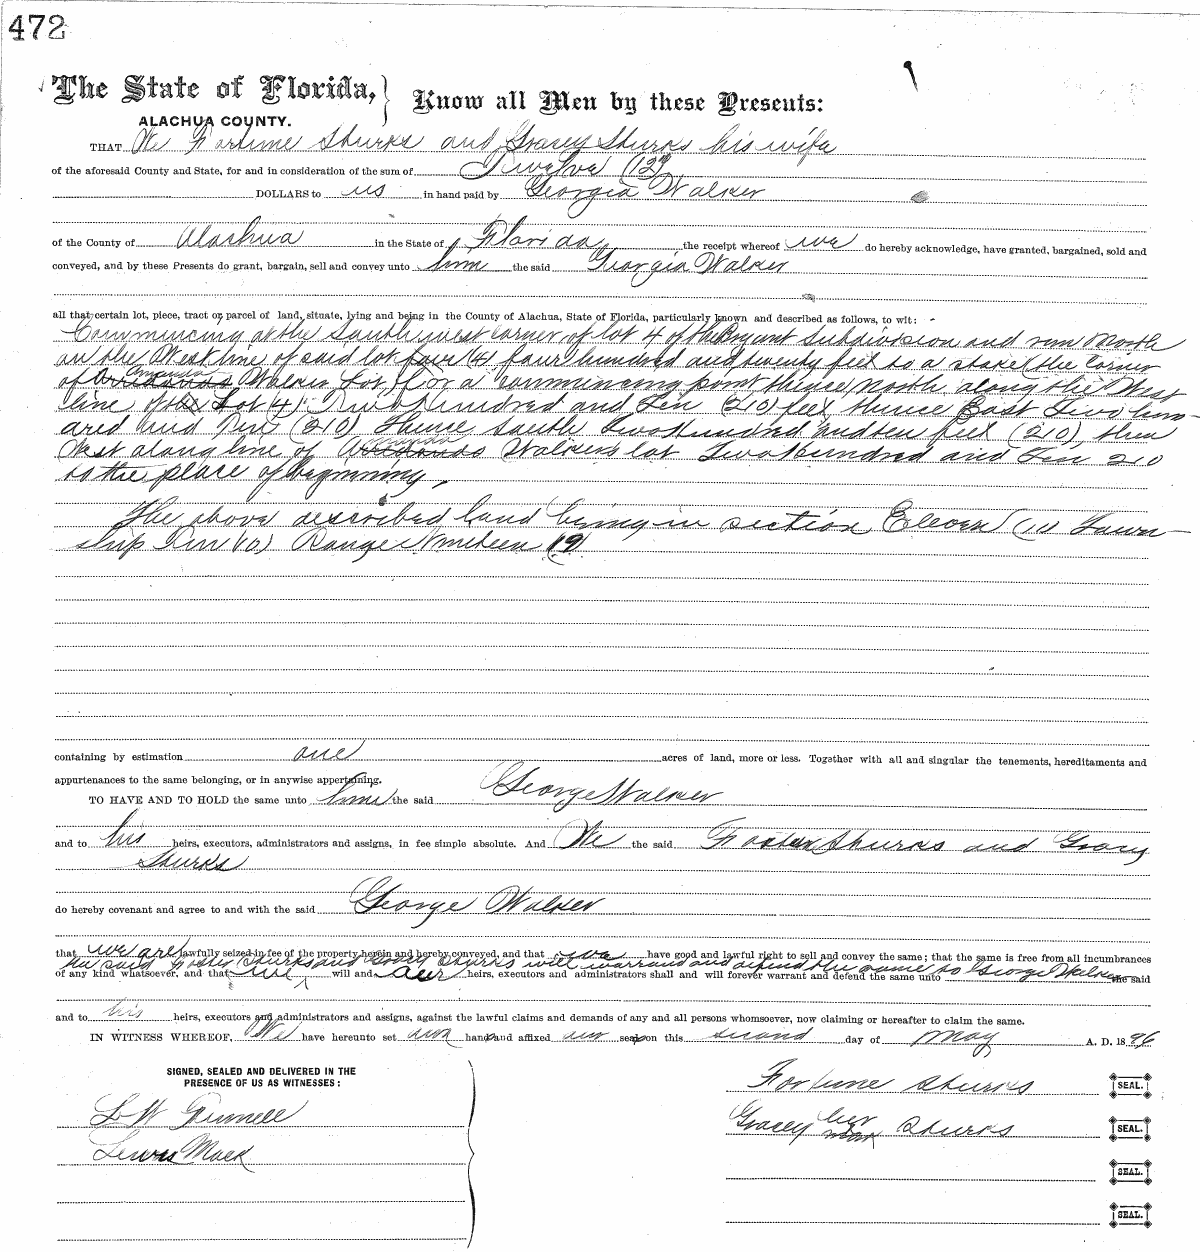 472
The State of Florida, } Know all Men by these Presents:
ALACHUA COUNTY.
THAT We Fortune Shurks and Gracey Shurks his wife
of the aforesaid County and State, for and in consideration of the sum of Twelve (12
DOLLARS to us in hand paid by Georgia Walker
of the County of Alachua in the State of Florida the receipt whereof we do hereby acknowledge, have granted, bargained, sold and
conveyed, and by these Presents do grant, bargain, sell and convey unto him the said Georgia Walker
all that certain lot, piece, tract or parcel of land, situate, lying and being in the County of Alachua, State of Florida, particularly known and described as follows, to wit:
Commencing at the South west corner of lot 4 of the Bryant Subdivision and run North
on the West line of said lot four (4) four hundred and twenty feet to a stake (the corner
of Amanda Walker Lot) for a commencing point thence North along the West
line of Lot 4 Two hundred and Ten (210) feet thence East Two hun-
dred and Ten (210) Thence south Two Hundred and ten feet (210) then
West along line of Amanda Walkers lot Two Hundred and Ten 210
to the place of beginning,
The above described land being in section Eleven (11) Town-
ship Ten (10) Range Nineteen (19)
containing by estimation one acres of land, more or less. Together with all and singular the tenements, hereditaments and
appurtenances to the same belonging, or in anywise appertaining.
TO HAVE AND TO HOLD the same unto him the said George Walker
and to his heirs, executors, administrators and assigns, in fee simple absolute. And We the said Shurks and Gracey
Shurks
do hereby covenant and agree to and with the said George Walker
that we are lawfully seized in fee of the property herein and hereby conveyed, and that we have good and lawful right to sell and convey the same; that the same is free from all incumbrances
he said Foster Shurks and Gracey Shurks will warrant and defend the same to George Walker
of any kind whatsoever, and that we will and our heirs, executors and administrators shall and will forever warrant and defend the same unto the said
and to his heirs, executors and administrators and assigns, against the lawful claims and demands of any and all persons whomsoever, now claiming or hereafter to claim the same.
IN WITNESS WHEREOF, We have hereunto set our hand and affixed our seal on this second day of May A. D. 1896
SIGNED, SEALED AND DELIVERED IN THE
PRESENCE OF US AS WITNESSES:
L W Grinnell
Lewis Mack
Fortune Shurks SEAL.
Gracey her mark Shurks SEAL.
SEAL.
SEAL.